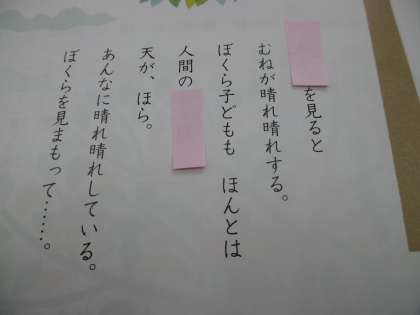 を見ると
むねが晴れ晴れする。
ぼくら子どもも ほんとは
人間の
天が、ほら。
あんなに晴れ晴れしている。
ぼくらを見まもって……。